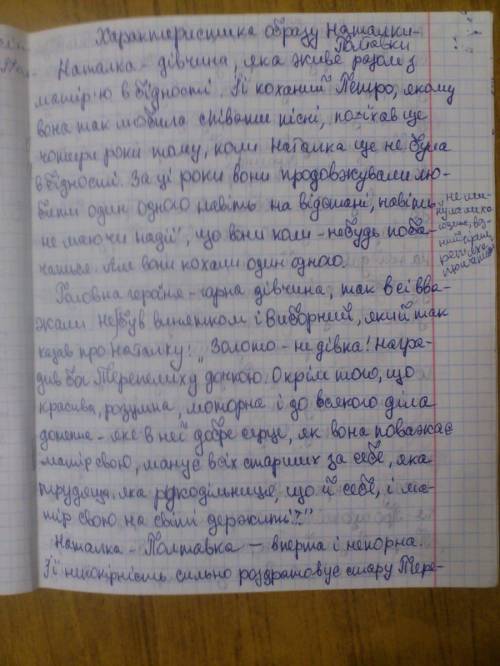 Характеристика образу Наталки-
Полтавки
Наталка - дівчина, яка живе разом з
матір'ю в бідності. Її коханий Петро, якому
вона так любила співати пісні, поїхав ще
чотири роки тому, коли Наталка ще не була
в бідності. За ці роки вони продовжували лю-
бити один одного навіть на відстані, навіть
не маючи надії, що вони коли-небудь поба-
чаться. Але вони кохали один одного.
Головна героїня - гарна дівчина, так всі вва-
жали не був винятком і Виборний, який так
казав про Наталку: „Золото - не дівка! Награ-
див бог Терпелиху дочкою. Окрім того, що
красива, розумна, моторна і до всякого діла
дотепна - яке в неї добре серце, як вона поважає
матір свою, шанує всіх старших за себе, яка
трудяща, яка рукодільниця, що й себе, і ма-
тір свою на світі держить!"
Наталка - Полтавка - вперта і непокірна.
Її непокірність сильно роздратовує стару Тере-